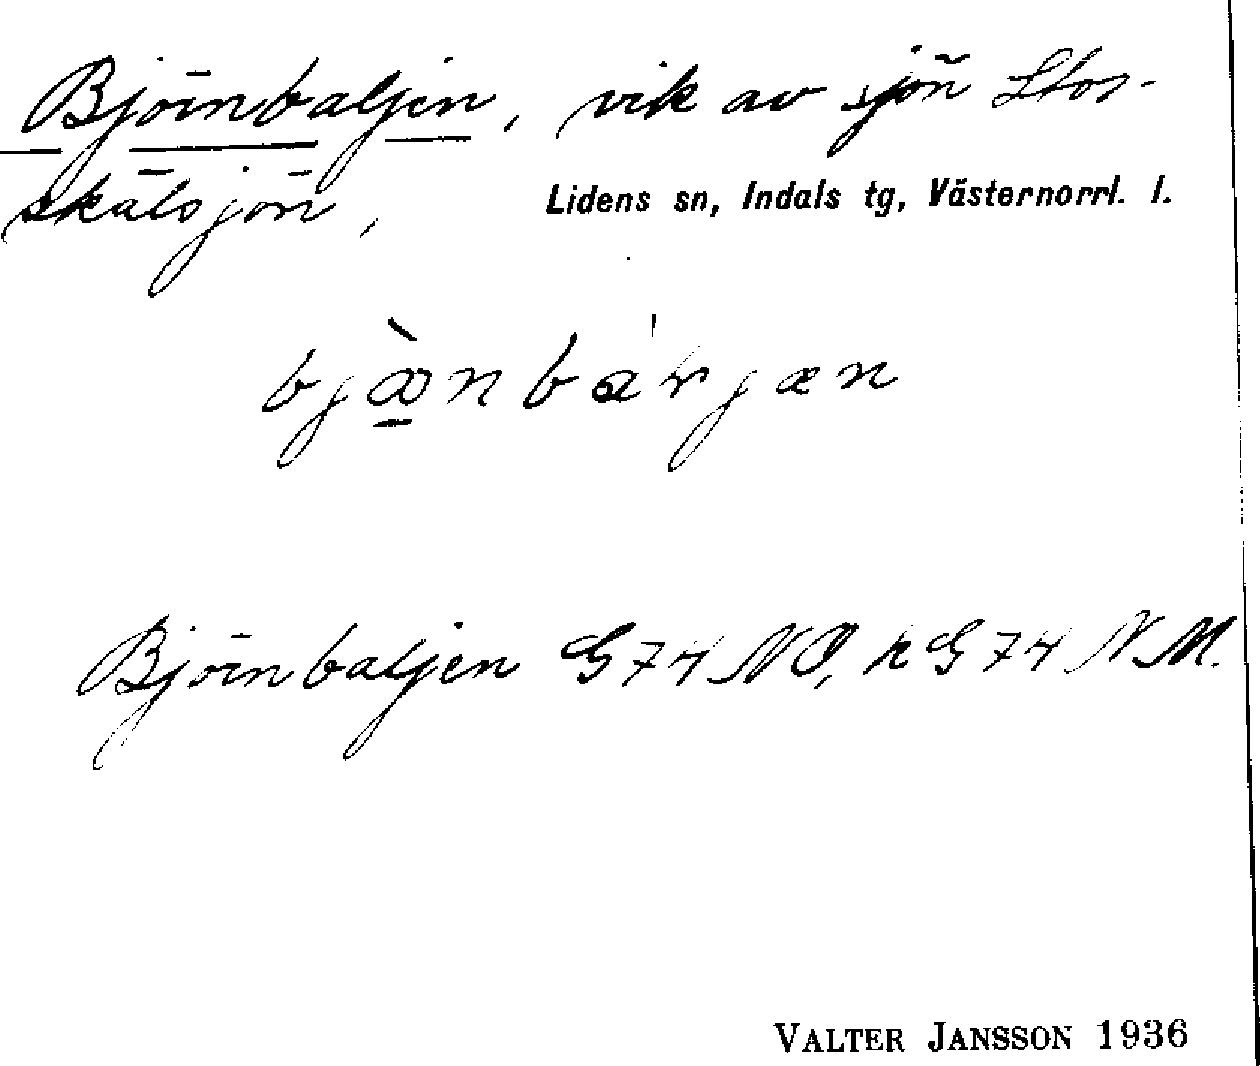 Björnbaljen, vik av sjön Stor-
skälsjön, Lidens sn, Indals tg, Västernorrl. l.
Björnbaljen G74 NO, k G74 NM.
VALTER JANSSON 1936